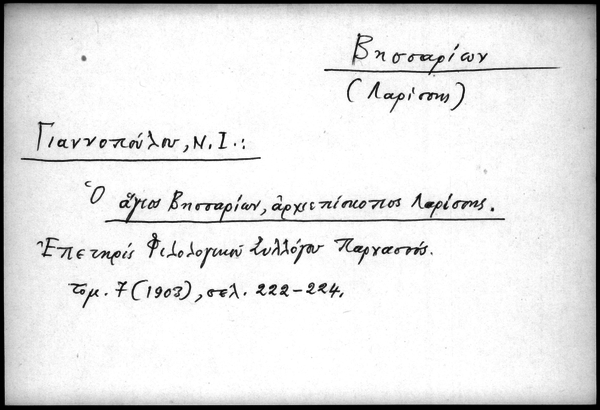 Βησσαρίων
(Λαρίσσης)
Γιαννοπούλου, Ν. Ι.:
Ὁ ἅγιος Βησσαρίων, ἀρχιεπίσκοπος Λαρίσσης.
Ἐπετηρὶς Φιλολογικοῦ Συλλόγου Παρνασσός.
τομ. 7 (1903), σελ. 222-224.